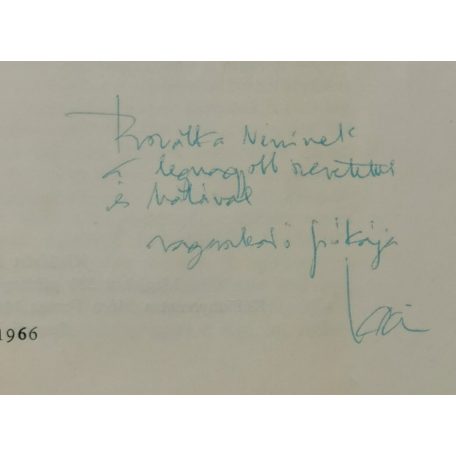 Néninek
a legnagyobb szeretettel
és hálával
ragaszkodó fiókája
1966